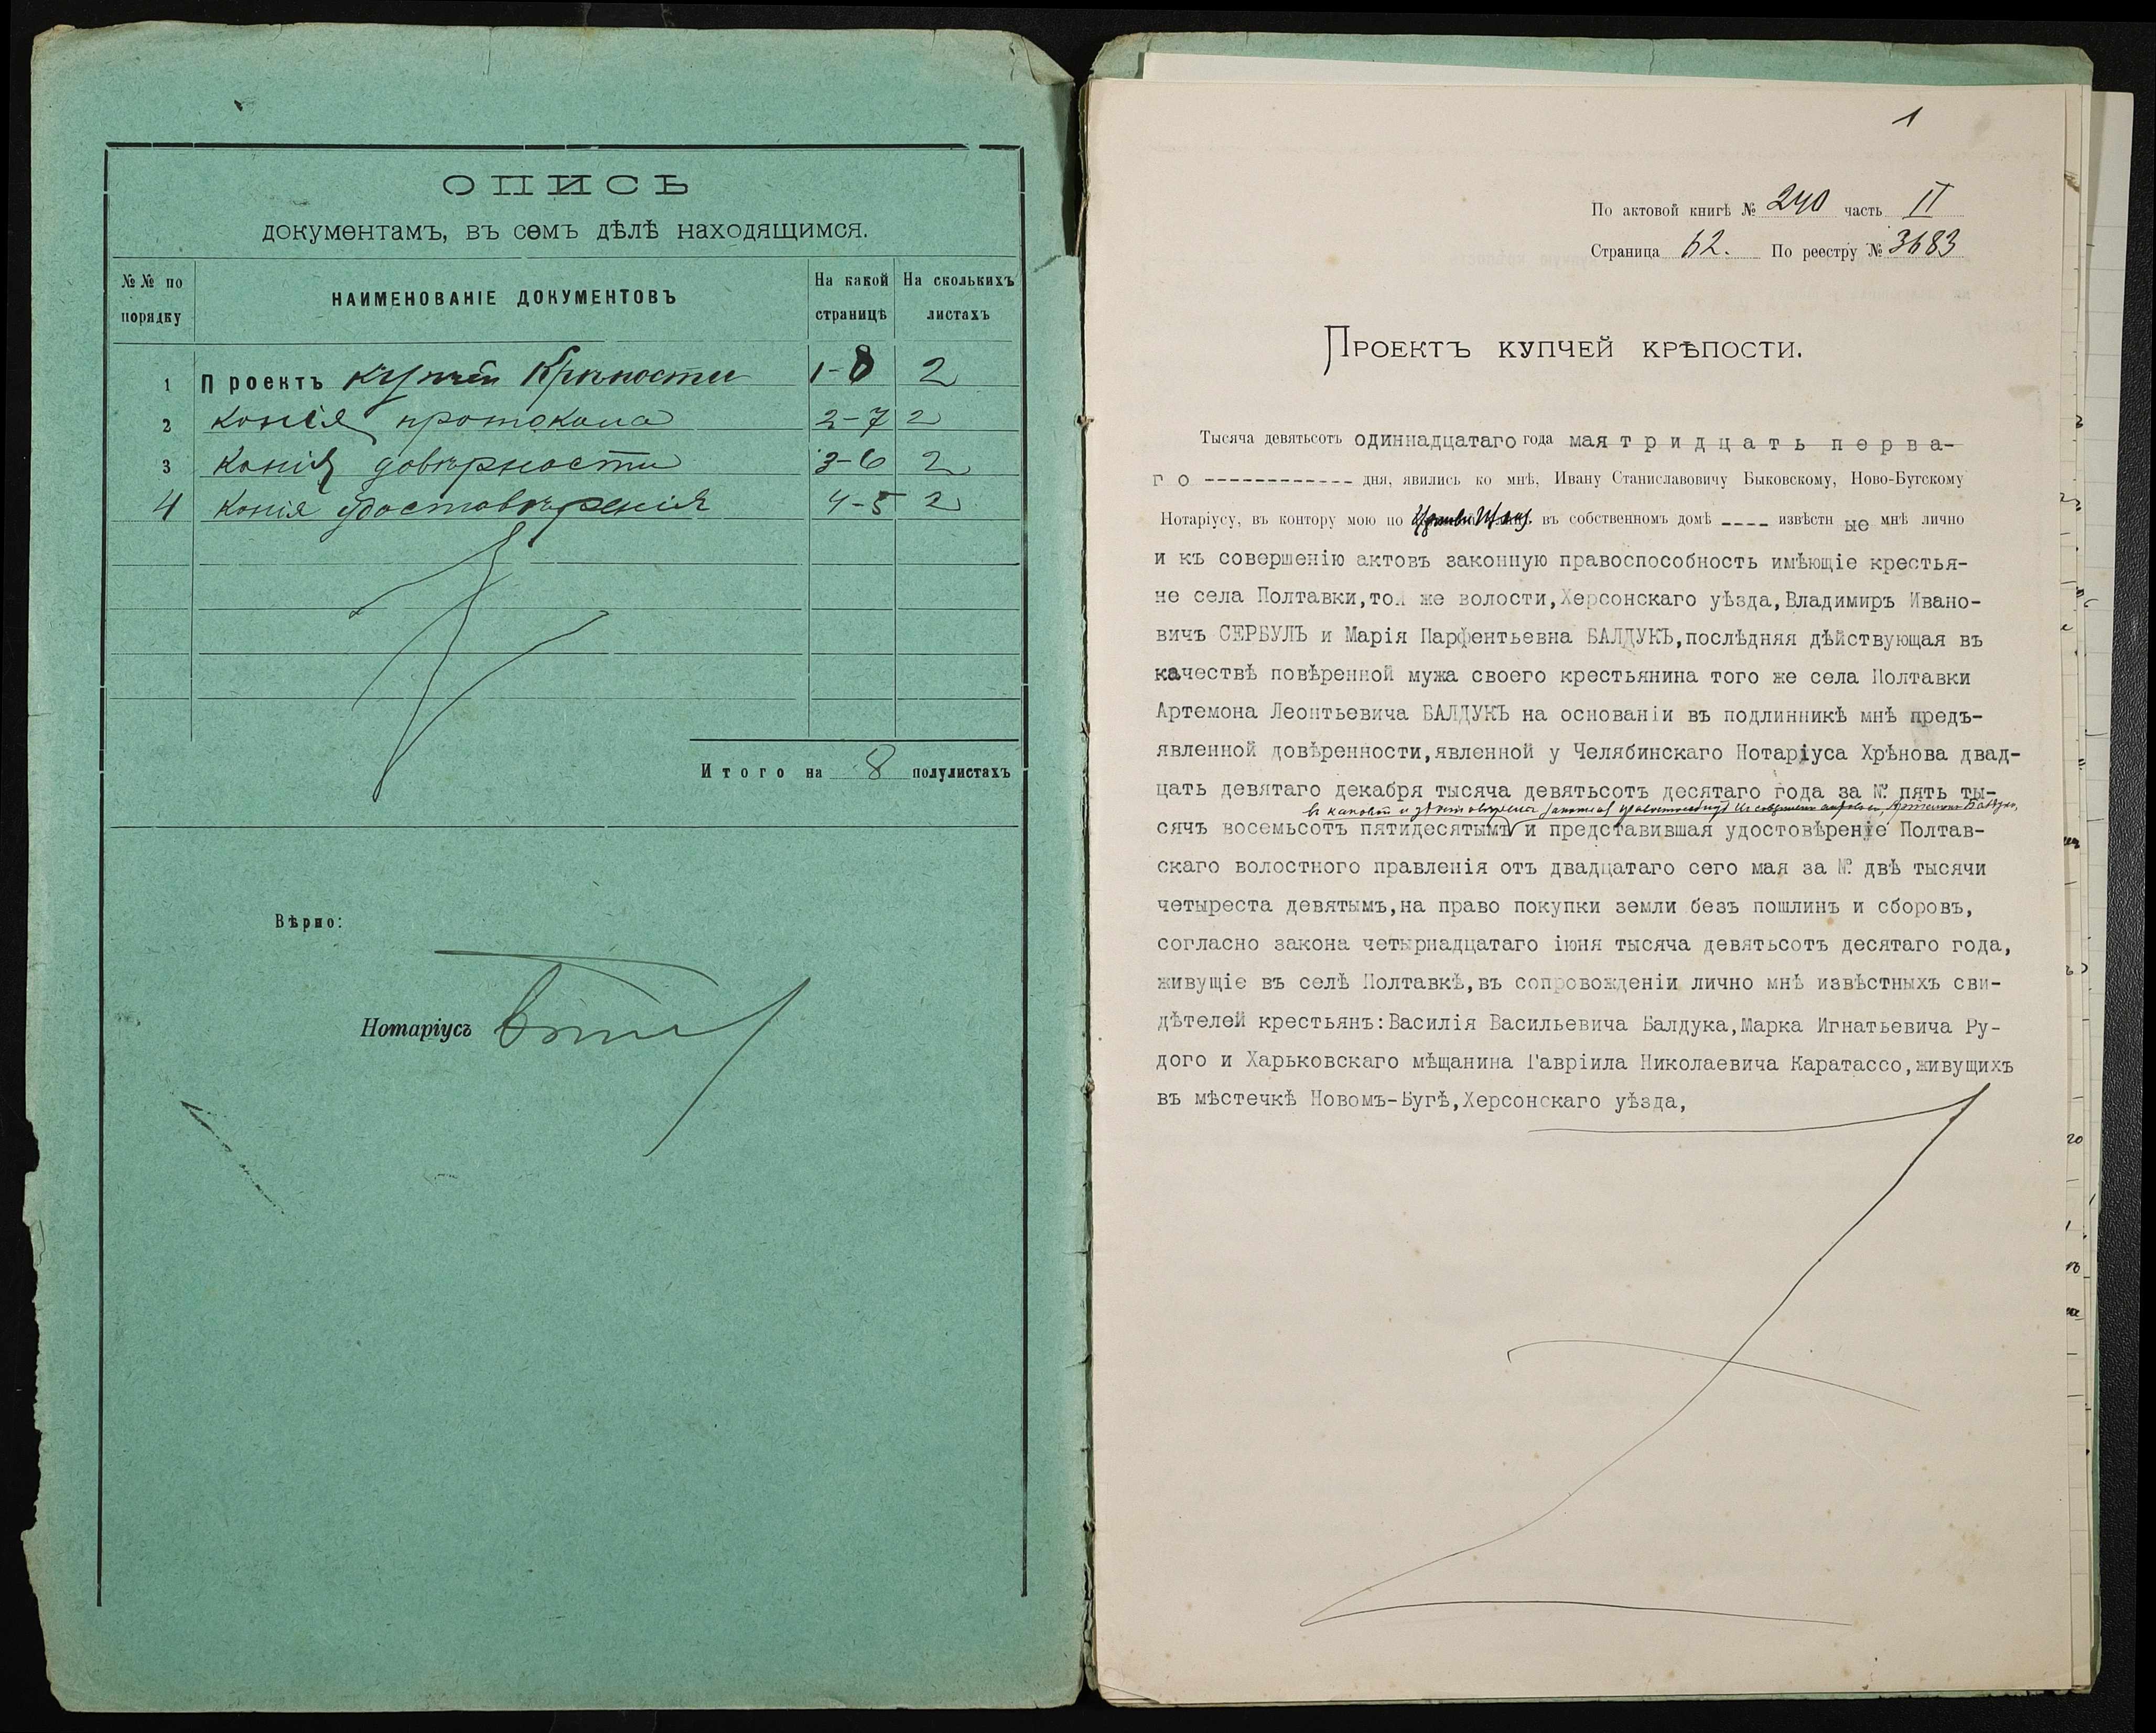 ОПИСЬ
документамъ, въ семъ дѣлѣ находящимся.
№№ по порядку
НАИМЕНОВАНІЕ ДОКУМЕНТОВЪ
На какой страницѣ
На сколькихъ листахъ
1 Проектъ купчей крѣпости 1-8 2
2 копія протокола 2-7 2
3 копія довѣрности 3-6 2
4 копія удостовѣренія 4-5 2
Итого на 8 полулистахъ
Вѣрно:
Нотаріусъ
1
По актовой книгѣ № 240 часть II
Страница 62. По реестру № 3683
Проектъ купчей крѣпости.
Тысяча девятьсотъ одиннадцатаго года мая тридцать перва-
го ------------ дня, явились ко мнѣ, Ивану Станиславовичу Быковскому, Ново-Бугскому
Нотаріусу, въ контору мою по въ собственномъ домѣ ---- извѣстн ые мнѣ лично
и къ совершенію актовъ законную правоспособность имѣющіе крестья-
не села Полтавки,той же волости,Херсонскаго уѣзда,Владимиръ Ивано-
вичъ СЕРБУЛЪ и Марія Парфентьевна БАЛДУКЪ,послѣдняя дѣйствующая въ
качествѣ повѣренной мужа своего крестьянина того же села Полтавки
Артемона Леонтьевича БАЛДУКЪ на основаніи въ подлинникѣ мнѣ предъ-
явленной довѣренности,явленной у Челябинскаго Нотаріуса Хрѣнова двад-
цать девятаго декабря тысяча девятьсотъ десятаго года за № пять ты-
сячъ восемьсотъ пятидесятымъ и представившая удостовѣреніе Полтав-
скаго волостного правленія отъ двадцатаго сего мая за № двѣ тысячи
четыреста девятымъ,на право покупки земли безъ пошлинъ и сборовъ,
согласно закона четырнадцатаго іюня тысяча девятьсотъ десятаго года,
живущіе въ селѣ Полтавкѣ,въ сопровожденіи лично мнѣ извѣстныхъ сви-
дѣтелей крестьянъ:Василія Васильевича Балдука,Марка Игнатьевича Ру-
дого и Харьковскаго мѣщанина Гавріила Николаевича Каратассо,живущихъ
въ мѣстечкѣ Новомъ-Бугѣ,Херсонскаго уѣзда,